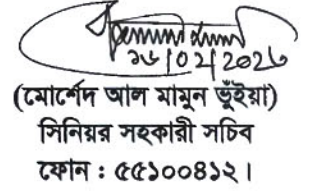 ১৬/০২/২০২৬
(মোর্শেদ আল মামুন ভূঁইয়া)
সিনিয়র সহকারী সচিব
ফোন : ৫৫১০০৪১২।